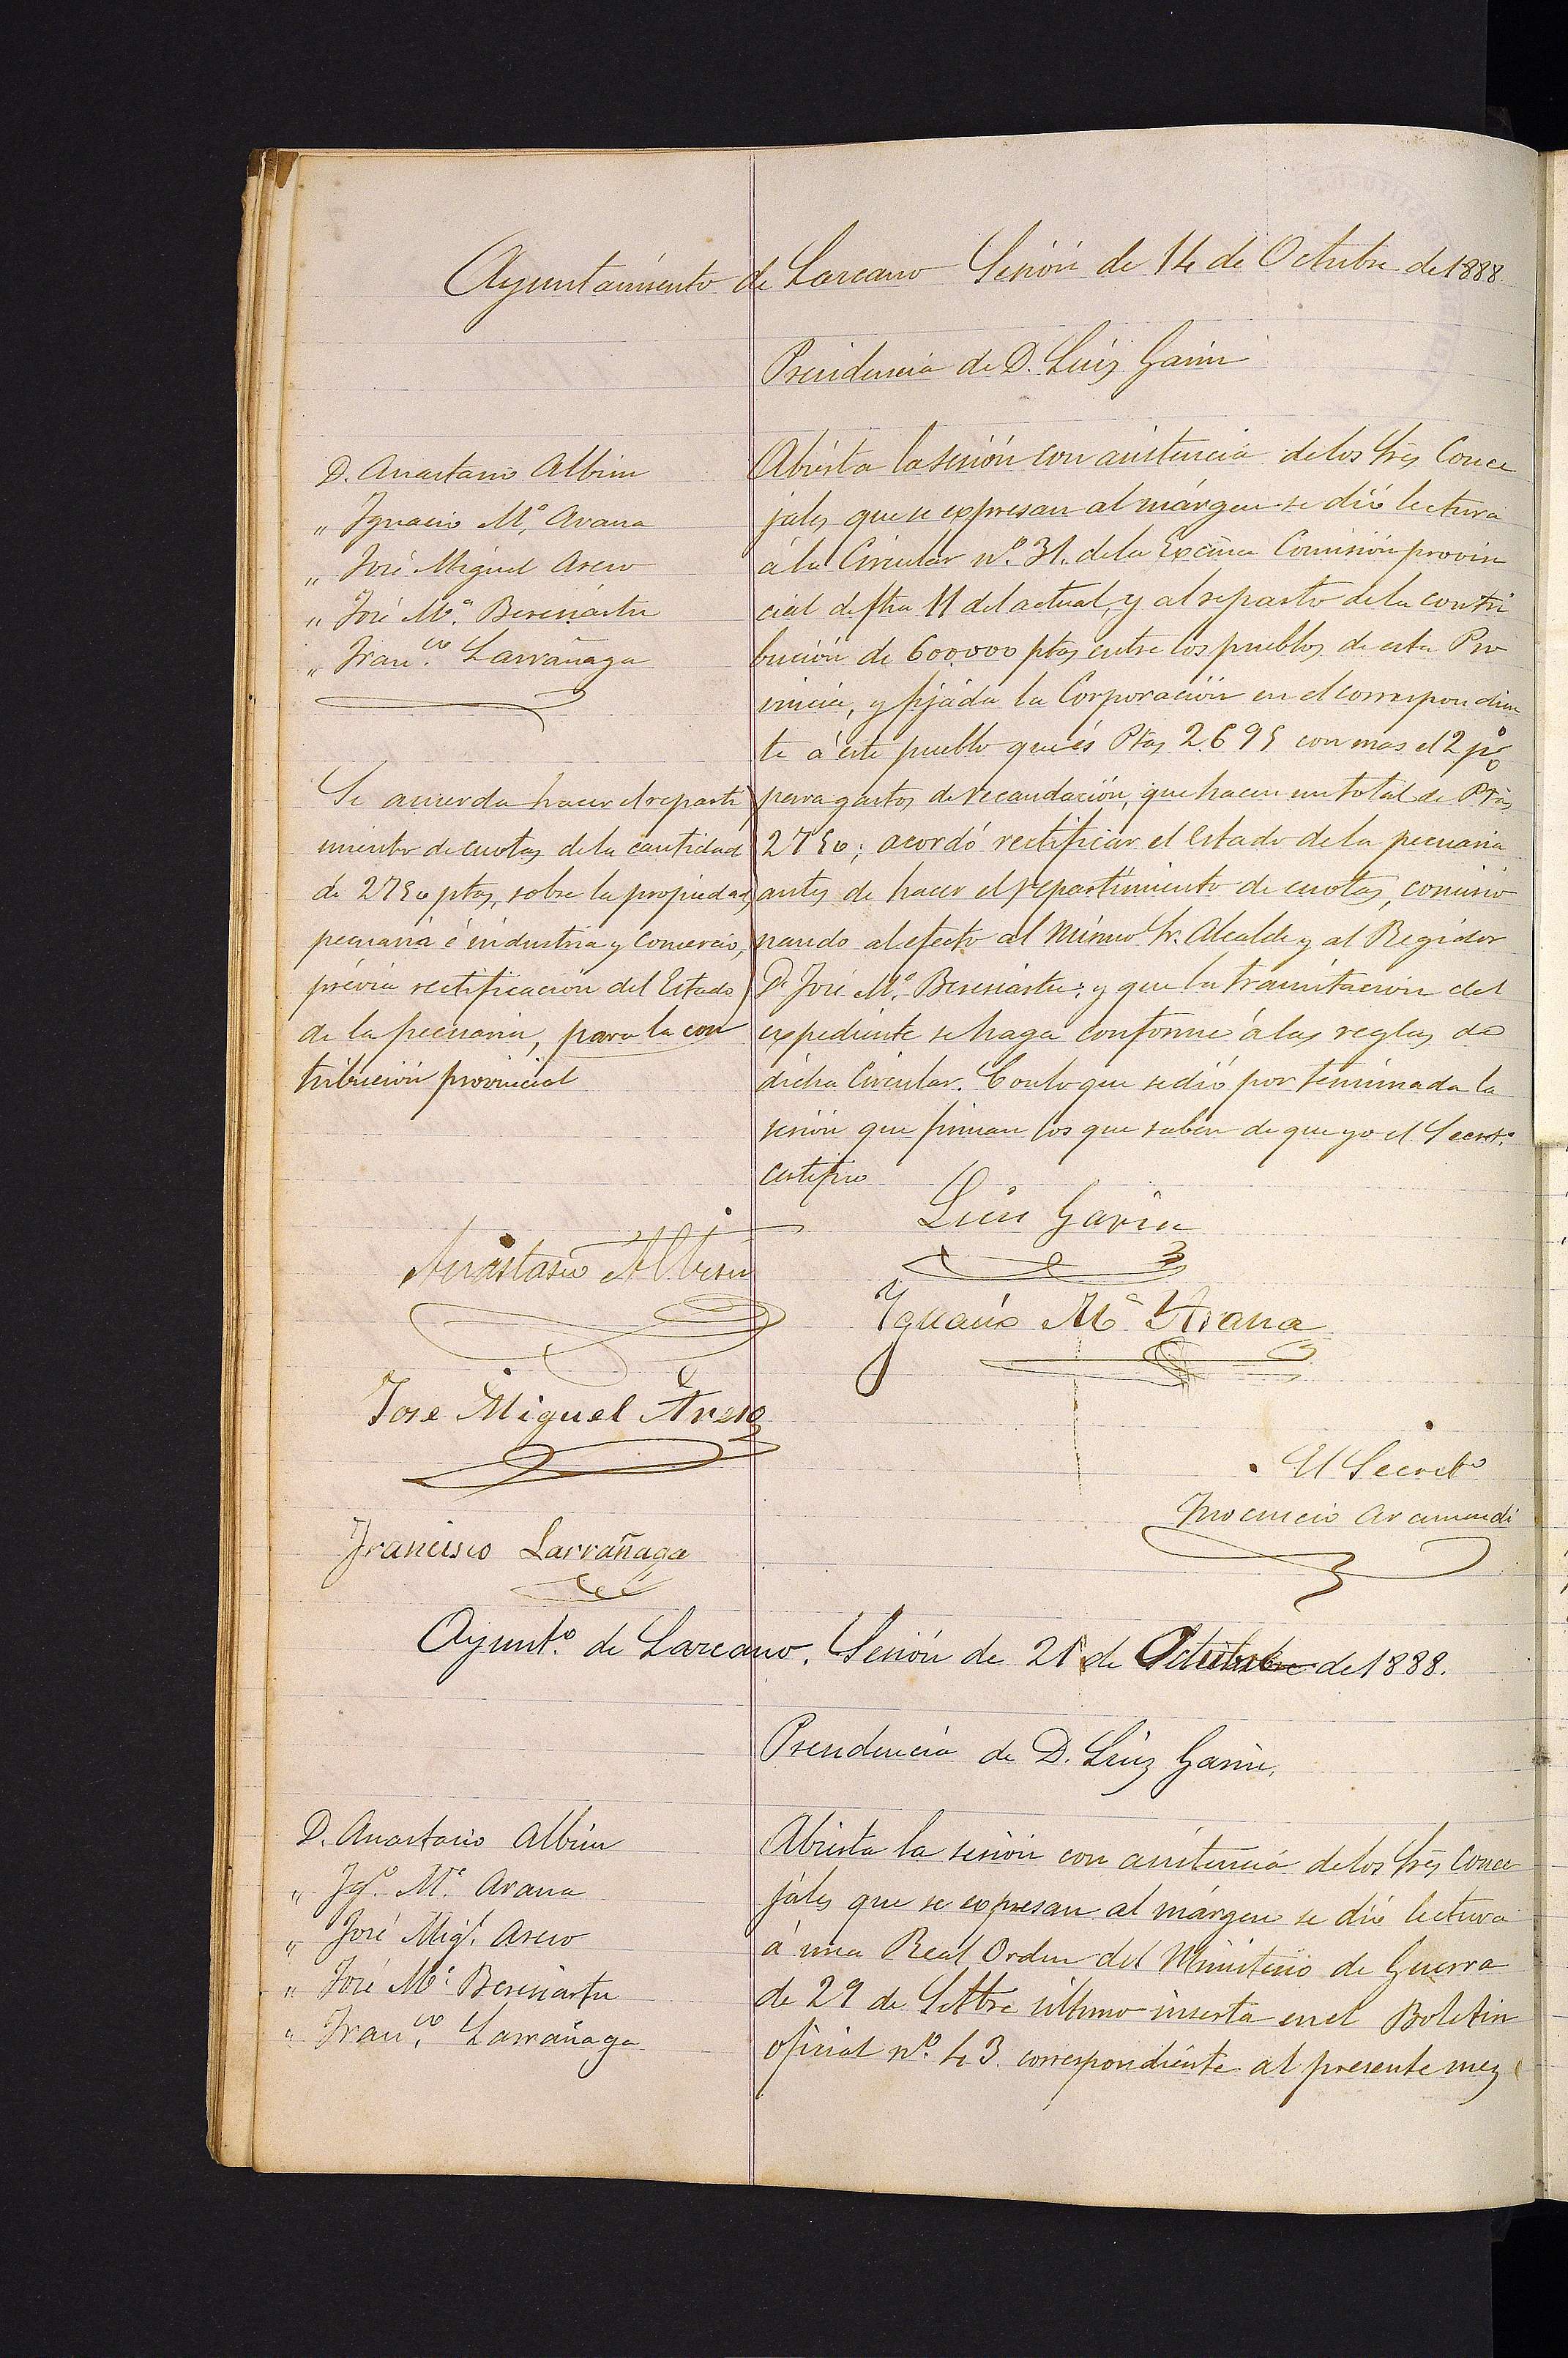 Ayuntamiento de Lazcano Sesión de 14 de Octubre de 1888.
Presidencia de D. Luis Garin
D. Anastasio Albisu
„ Ignacio Mª. Arana
„ José Miguel Areso
„ José Mª. Beresiartu
„ Fran.co Larrañaga
Se acuerda hacer el reparti
miento de cuotas de la cantidad
de 2750 ptas, sobre la propiedad,
pecuaria é industria y Comercio,
prévia rectificación del Estado
de la pecuaria, para la con
tribución provincial
Abierta la sesión con asistencia de los Sres Conce
jales que se expresan al márgen se dió lectura
á la Circular nº. 31. de la Excma Comisión provin
cial de fha 11 del actual, y al reparto de la contri
bución de 600,000 ptas entre los pueblos de esta Pro
vincia, y fijada la Corporación en el correspondien
te á este pueblo que és Ptas 2.695 con mas el 2 p%
para gastos de recaudación, que hacen un total de Ptas
2750; acordó rectificar el Estado de la pecuaria
antes de hacer el repartimiento de cuotas, comisio
nando al efecto al mismo Sr. Alcalde y al Regidor
Dn José Mª. Beresiartu; y que la tramitacion del
expediente se haga conforme á las reglas de
dicha Circular. Con lo que se dió por terminada la
sesión que firman los que saben de que yo el Secret.º
certifico
Luis Garin
Anastasio Albisu
Ignacio Mª Arana
Jose Miguel Areso
El Secretº
Inocencio Aramendi
Francisco Larrañaga
Ayunt.º de Lazcano. Sesión de 21 de Octubre de 1888.
Presidencia de D. Luis Garin.
D. Anastasio Albisu
„ Igº. Mª. Arana
„ José Migl. Areso
„ José Mª. Beresiartu
„ Fran.co Larrañaga
Abierta la sesión con asistencia de los Sres Conce
jales que se expresan al márgen se dió lectura
á una Real Orden del Ministerio de Guerra
de 29 de Setbre último inserta en el Boletin
oficial nº. 43. correspondiente al presente mes